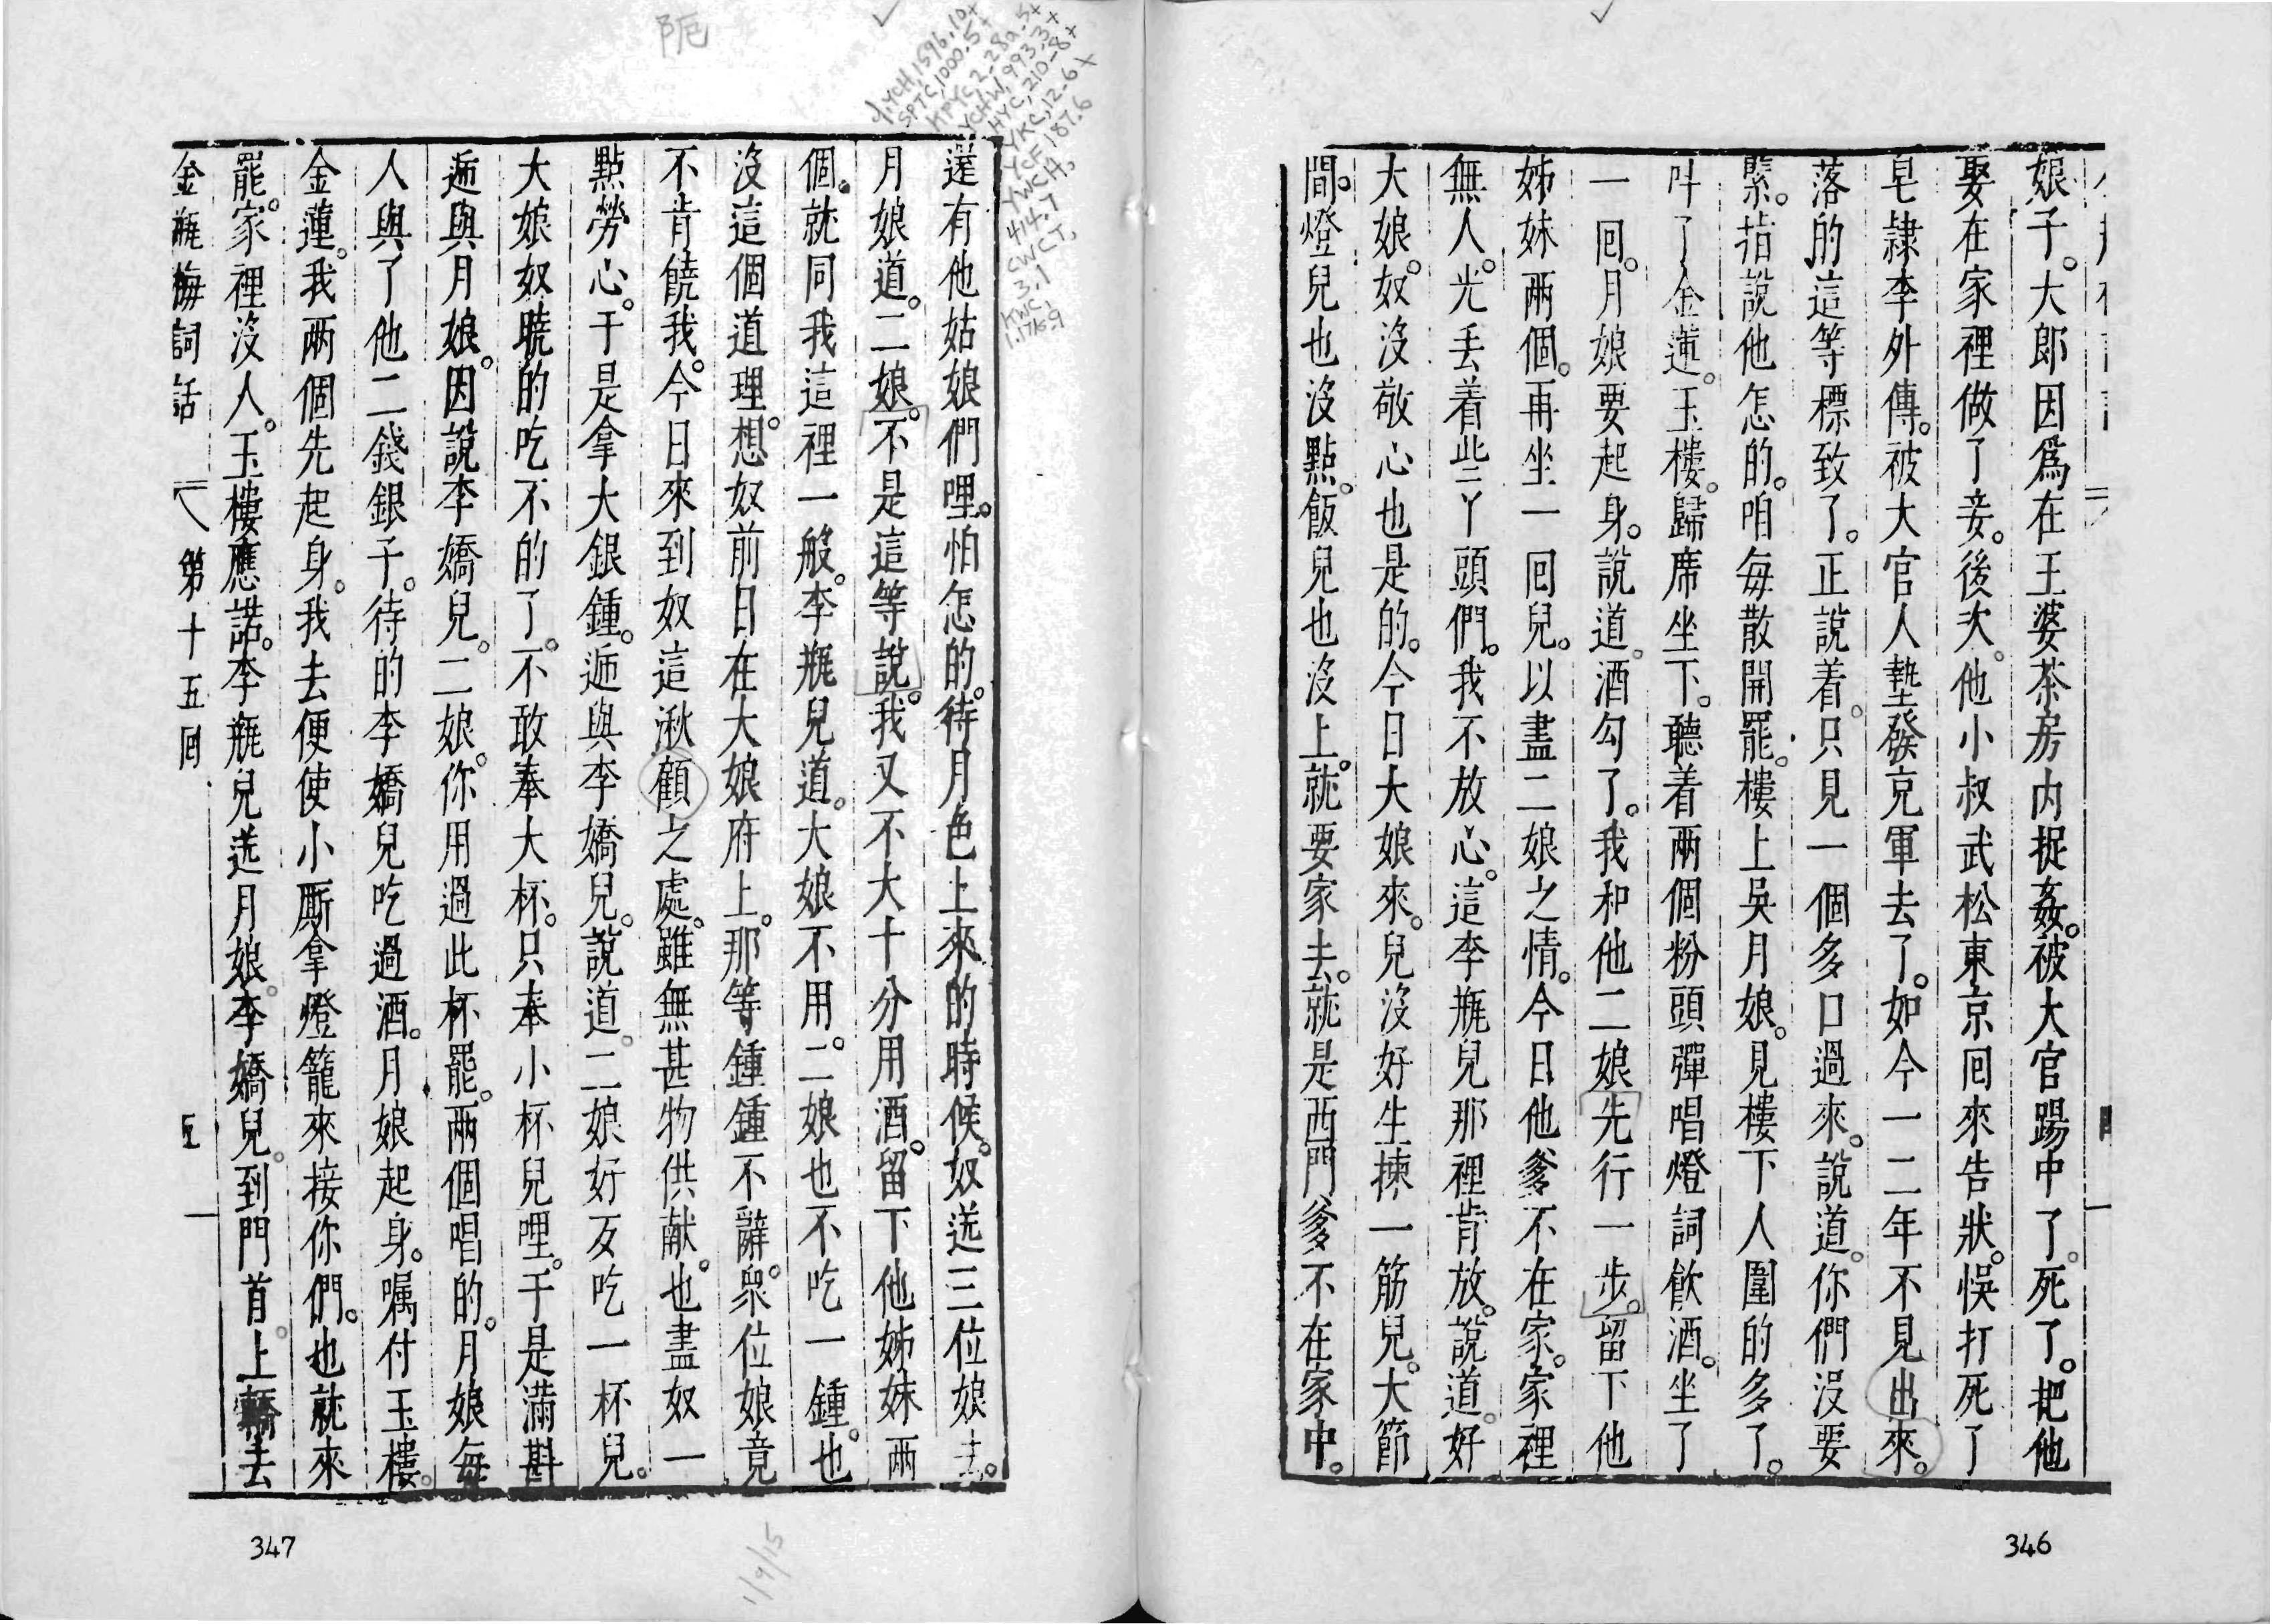 娘子。大郎因爲在王婆茶房内捉姦。被大官踢中了。死了。把他
娶在家裡做了妾。後次他小叔武松東京囘來告狀。悞打死了
皂隷李外傳。被大官人墊發充軍去了。如今一二年不見出來。
落的這等標致了。正說着。只見一個多口過來。說道。你們没要
緊。指說他怎的。咱每散開罷。樓上吳月娘。見樓下人圍的多了。
叫了金蓮。玉樓。歸席坐下。聽着兩個粉頭彈唱燈詞飲酒。坐了
一囘。月娘要起身。說道。酒勾了。我和他二娘先行一步。留下他
姊妹兩個。再坐一囘兒。以盡二娘之情。今日他爹不在家。家裡
無人。光丢着些丫頭們。我不放心。這李瓶兒那裡肯放。說道。好
大娘。奴沒敬心也是的。今日大娘來。兒沒好生揀一筋兒。大節
間。燈兒也沒點。飯兒也沒上。就要家去。就是西門爹不在家中。
四
346
還有他姑娘們哩。怕怎的。待月色上來的時候。奴送三位娘去。
月娘道。二娘。不是這等說。我又不大十分用酒。留下他姊妹兩
個。就同我這裡一般。李瓶兒道。大娘不用。二娘也不吃一鍾。也
沒這個道理。想奴前日在大娘府上。那等鍾鍾不辭。衆位娘竟
不肯饒我。今日來到奴這湫顧之處。雖無甚物供献。也盡奴一
點勞心。于是拿大銀鍾。逓與李嬌兒。說道。二娘好歹吃一杯兒。
大娘奴曉的吃不的了。不敢奉大杯。只奉小杯兒哩。于是滿斟
逓與月娘。因說李嬌兒。二娘。你用過此杯罷。兩個唱的。月娘每
人與了他二錢銀子。待的李嬌兒吃過酒。月娘起身。嘱付玉樓。
金蓮。我兩個先起身。我去便使小厮拿燈籠來接你們。也就來
罷。家裡沒人。玉樓應諾。李瓶兒送月娘。李嬌兒。到門首。上轎去
金瓶梅詞話 第十五囘 五
347
阨
YCH, 1596.10+
SPTC, 1000.5+
KPYC, 2-28a.5+
YCHW, 993.3+
HYC, 210-8+
YKC, 12-6+
YCF, 187.6
YWCH,
414.7
CWCT,
3.1
KWC,
1.1715.9
1/9/15